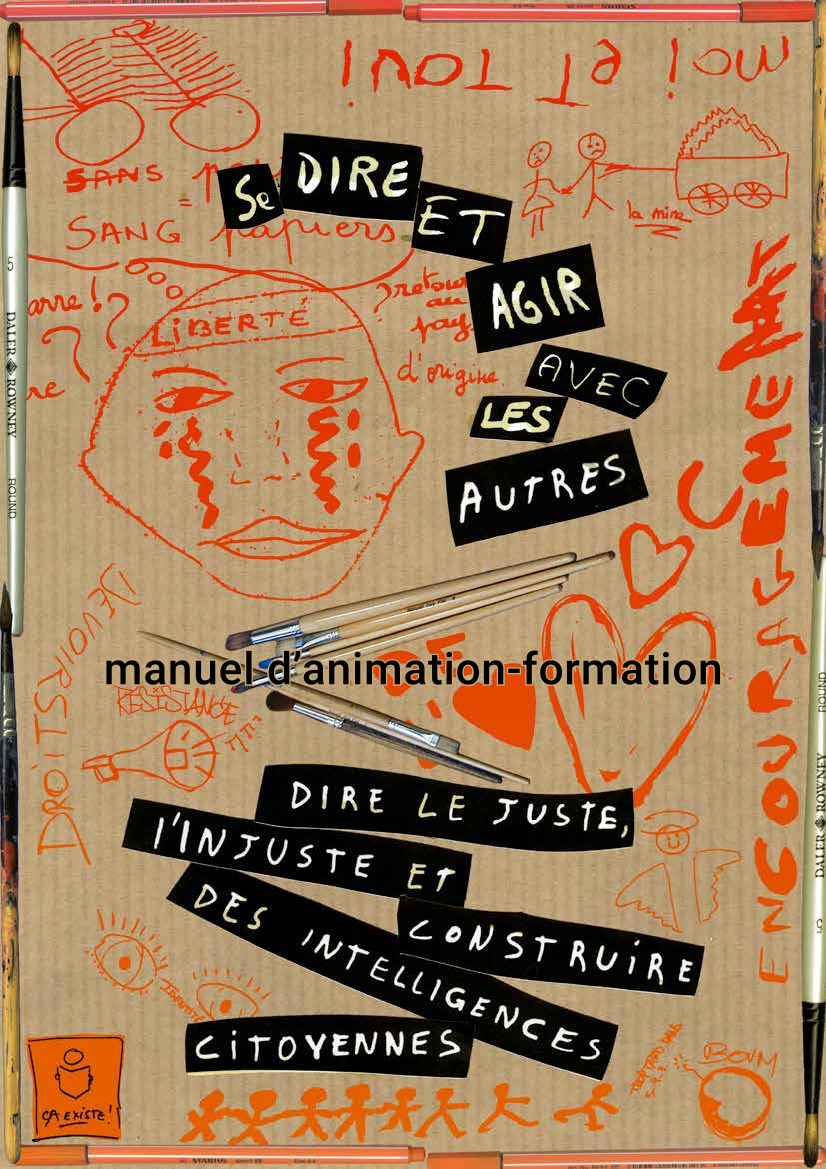 moi et toui
SANS
SANG papiers
=
la mine
Se DIRE
ET
AGIR
AVEC
LES
AUTRES
arre !
LIBERTÉ
? retour
au
pays
d'origine
ENCOURAGEMENT
DEVOIRS
DROITS
manuel d'animation-formation
RÉSISTANCE
DIRE LE JUSTE,
l'INJUSTE ET
CONSTRUIRE
DES INTELLIGENCES
CITOYENNES
BOUM
ÇA EXISTE !
5
DALER ROWNEY
ROUND
ROUND
DALER ROWNEY